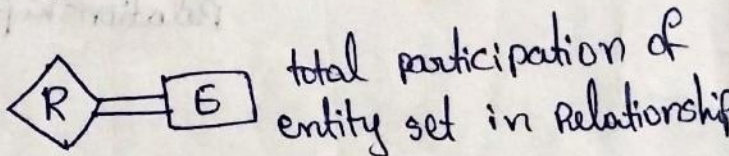 total participation of
R E entity set in Relationship